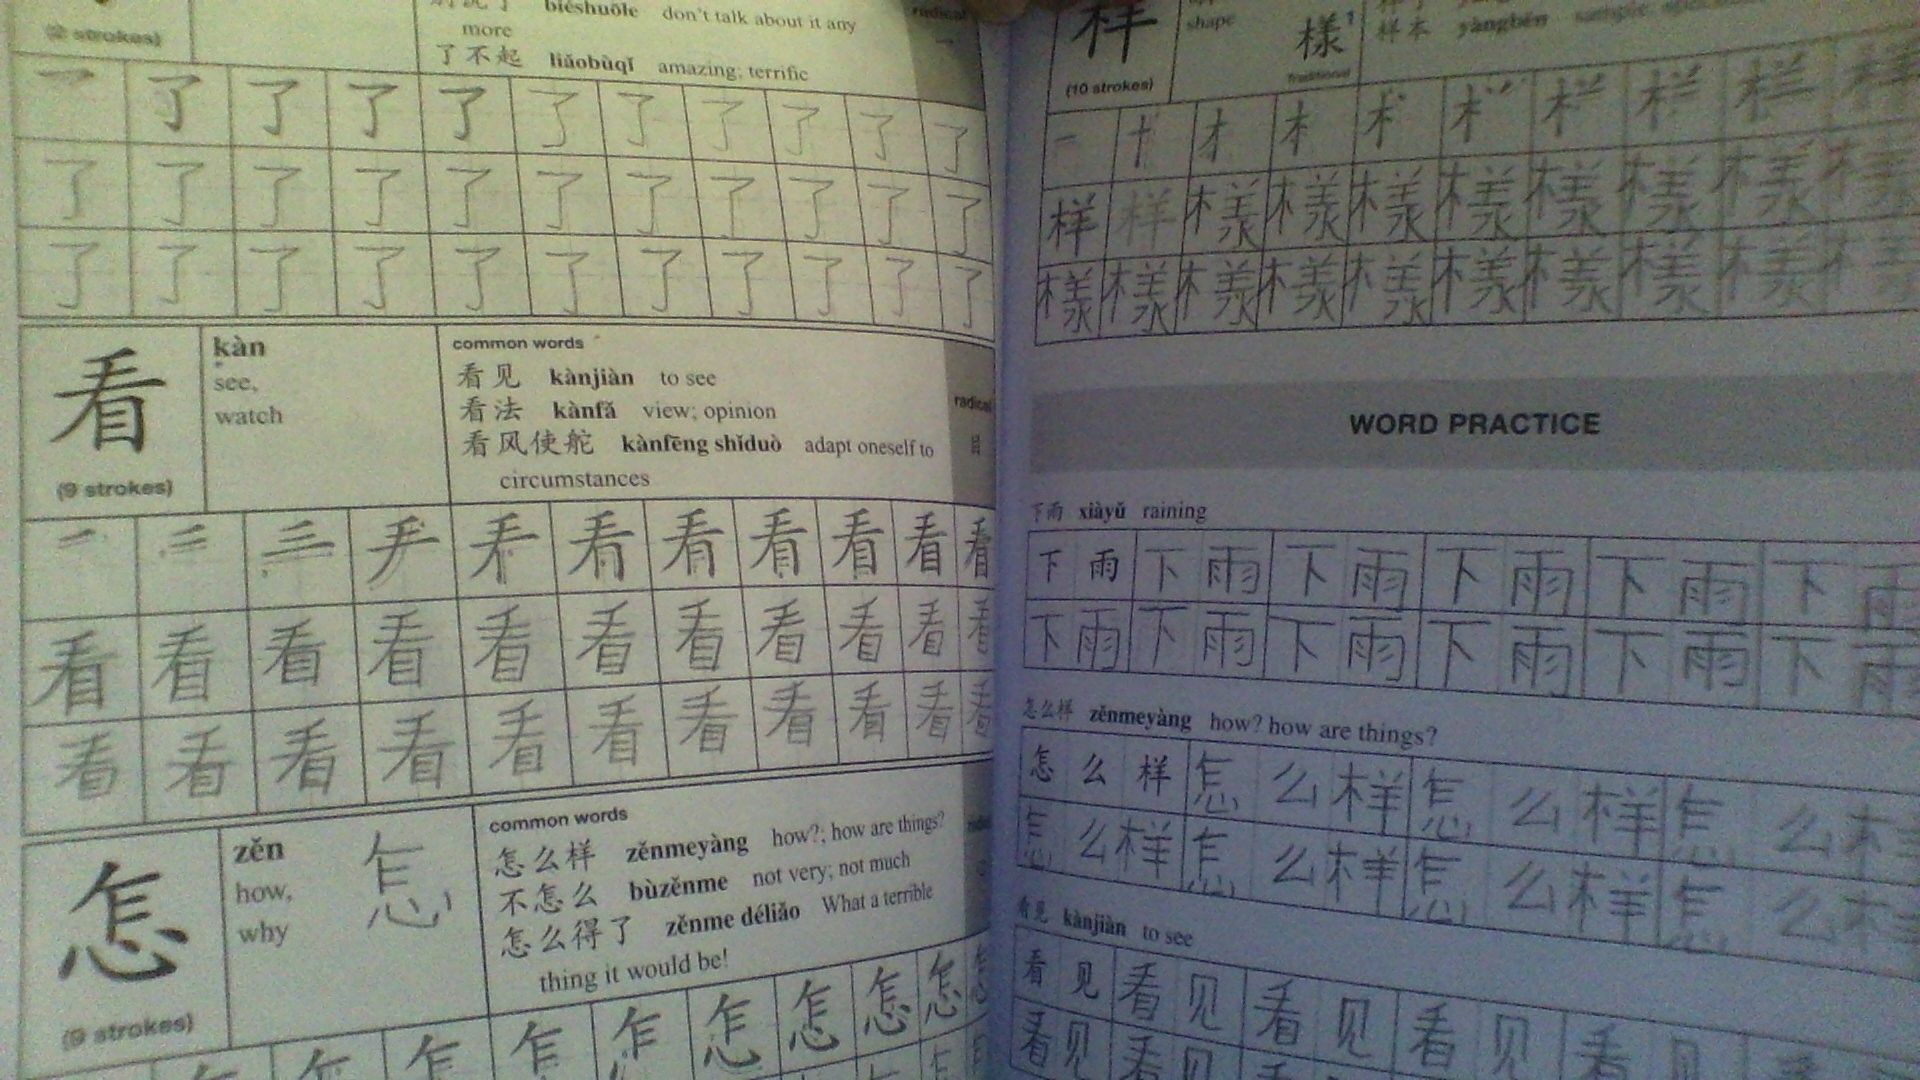 (2 strokes)
biéshuōle don't talk about it any
more
了不起 liǎobùqǐ amazing; terrific
radical
一 了 了 了 了 了 了 了 了 了 了
了 了 了 了 了 了 了 了 了 了 了
了 了 了 了 了 了 了 了 了 了 了
看
(9 strokes)
kàn
see,
watch
common words
看见 kànjiàn to see
看法 kànfǎ view; opinion
看风使舵 kànfēng shǐduò adapt oneself to
circumstances
radical
目
看 看 看 看 看 看
看 看 看 看 看 看 看 看 看 看 看
看 看 看 看 看 看 看 看 看 看 看
怎
(9 strokes)
zěn
how,
why
怎
common words
怎么样 zěnmeyàng how?; how are things?
不怎么 bùzěnme not very; not much
怎么得了 zěnme déliǎo What a terrible
thing it would be!
怎 怎 怎 怎
样
(10 strokes)
shape
樣
Traditional
样本 yàngběn
一 十 才 木
样 样 樣 樣 樣 樣 樣 樣 樣 樣
樣 樣 樣 樣 樣 樣 樣 樣 樣 樣
WORD PRACTICE
下雨 xiàyǔ raining
下雨 下雨 下雨 下雨 下雨 下雨
下雨 下雨 下雨 下雨 下雨 下雨
怎么样 zěnmeyàng how? how are things?
怎么样 怎么样 怎么样 怎么样
怎么样 怎么样 怎么样 怎么样
看见 kànjiàn to see
看见 看见 看见 看见 看见
看见 看见 看 看